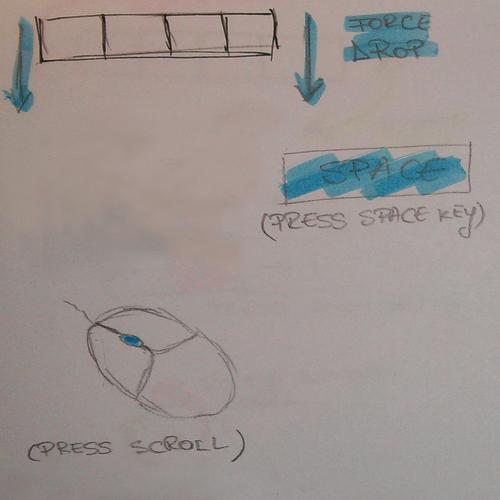 FORCE
DROP
SPACE
(PRESS SPACE KEY)
(PRESS SCROLL)